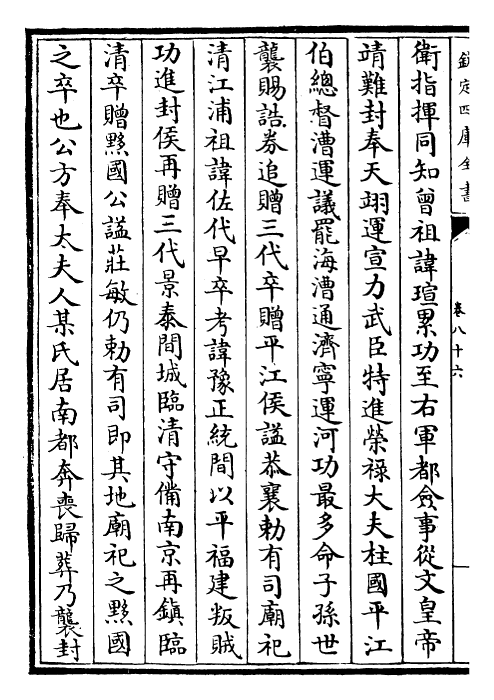 欽定四庫全書
卷八十六
衛指揮同知曾祖諱瑄累功至右軍都僉事從文皇帝
靖難封奉天翊運宣力武臣特進榮祿大夫柱國平江
伯總督漕運議罷海漕通濟寧運河功最多命子孫世
襲賜誥券追贈三代卒贈平江侯謚恭襄勅有司廟祀
清江浦祖諱佐代早卒考諱豫正統間以平福建叛賊
功進封侯再贈三代景泰間城臨清守備南京再鎮臨
清卒贈黟國公謚莊敏仍勅有司即其地廟祀之黟國
之卒也公方奉太夫人某氏居南都奔喪歸葬乃襲封